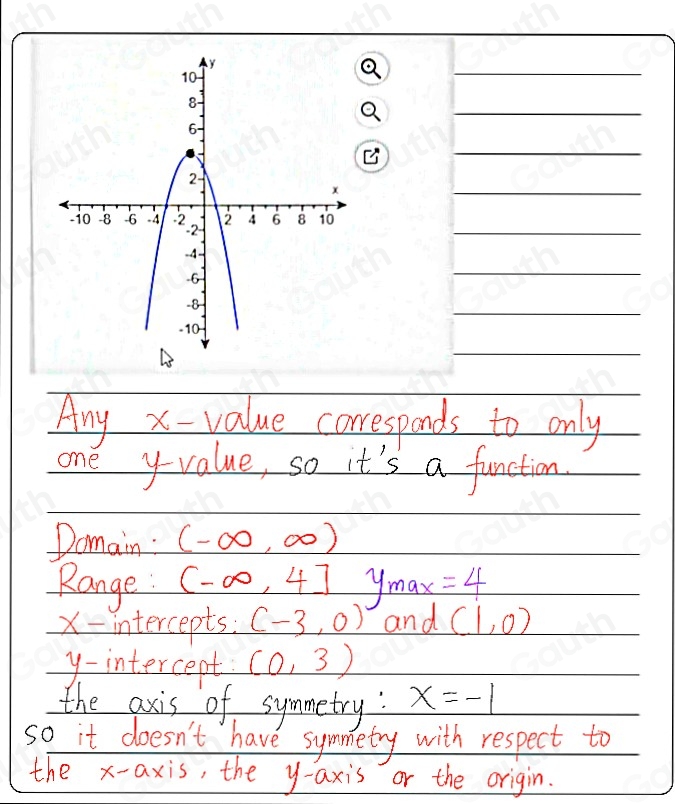 y
10
8
6
2
x
-10 -8 -6 -4 -2 2 4 6 8 10
-2
-4
-6
-8
-10
Any x-value corresponds to only
one y-value, so it's a function.
Domain: (-∞, ∞)
Range: (-∞, 4] ymax = 4
x-intercepts: (-3, 0) and (1, 0)
y-intercept: (0, 3)
the axis of symmetry: x = -1
so it doesn't have symmetry with respect to
the x-axis, the y-axis or the origin.
Gauth